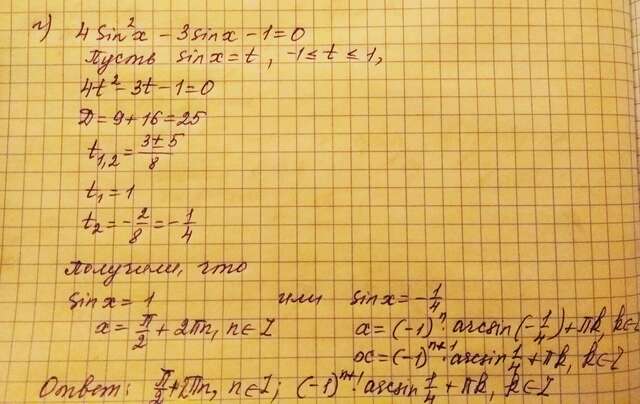 г) 4 sin²x − 3 sinx − 1 = 0
Пусть sinx = t, −1 ≤ t ≤ 1,
4t² − 3t − 1 = 0
D = 9 + 16 = 25
t₁,₂ = (3 ± 5)/8
t₁ = 1
t₂ = −2/8 = −1/4
Получим, что
sinx = 1 или sinx = −1/4
x = π/2 + 2πn, n ∈ Z x = (−1)ⁿ · arcsin(−1/4) + πk, k ∈ Z
x = (−1)ⁿ⁺¹ · arcsin 1/4 + πk, k ∈ Z
Ответ: π/2 + 2πn, n ∈ Z; (−1)ⁿ⁺¹ · arcsin 1/4 + πk, k ∈ Z